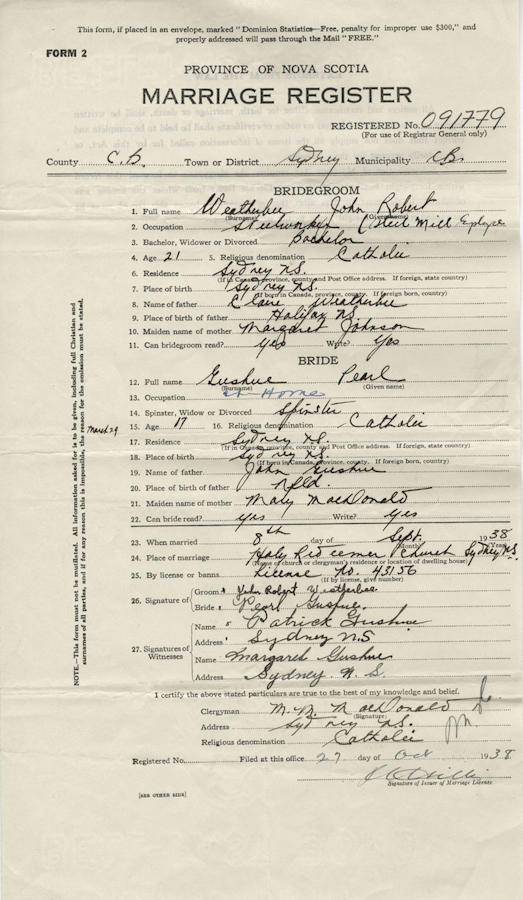 This form, if placed in an envelope, marked "Dominion Statistics—Free, penalty for improper use $300," and
properly addressed will pass through the Mail "FREE."
FORM 2
PROVINCE OF NOVA SCOTIA
MARRIAGE REGISTER
REGISTERED No. 091779
(For use of Registrar General only)
County C.B. Town or District Sydney Municipality CB.
BRIDEGROOM
1. Full name Weatherbee John Robert
(Surname) (Given name)
2. Occupation Steelworker (Steel Mill Employee
3. Bachelor, Widower or Divorced Bachelor
4. Age 21 5. Religious denomination Catholic
6. Residence Sydney N.S.
(If in Canada, province, county and Post Office address. If foreign, state country)
7. Place of birth Sydney N.S.
(If born in Canada, province, county. If foreign born, country)
8. Name of father Claire Weatherbee
9. Place of birth of father Halifax N.S.
10. Maiden name of mother Margaret Johnson
11. Can bridegroom read? Yes Write? Yes
BRIDE
12. Full name Gushue Pearl
(Surname) (Given name)
13. Occupation at Home
14. Spinster, Widow or Divorced Spinster
March 29 15. Age 17 16. Religious denomination Catholic
17. Residence Sydney N.S.
(If in Canada, province, county and Post Office address. If foreign, state country)
18. Place of birth Sydney N.S.
(If born in Canada, province, county. If foreign born, country)
19. Name of father John Gushue
20. Place of birth of father Nfld.
21. Maiden name of mother Mary MacDonald
22. Can bride read? Yes Write? Yes
23. When married 8th day of Sept. 1938
(Month) (Year)
24. Place of marriage Holy Redeemer Church Sydney N.S.
(Name of church or clergyman's residence or location of dwelling house)
25. By license or banns License No. 43156
(If by license, give number)
26. Signature of Groom John Robert Weatherbee
Bride Pearl Gushue
27. Signatures of Witnesses
Name Patrick Gushue
Address Sydney N.S
Name Margaret Gushue
Address Sydney N. S.
I certify the above stated particulars are true to the best of my knowledge and belief.
Clergyman M. M. MacDonald
(Signature)
Address Sydney N.S.
Religious denomination Catholic
Registered No. Filed at this office 27 day of Oct 1938
Signature of Issuer of Marriage License
[SEE OTHER SIDE]
NOTE.—This form must not be mutilated. All information asked for is to be given, including full Christian and
surnames of all parties, and if for any reason this is impossible, the reason for the omission must be stated.